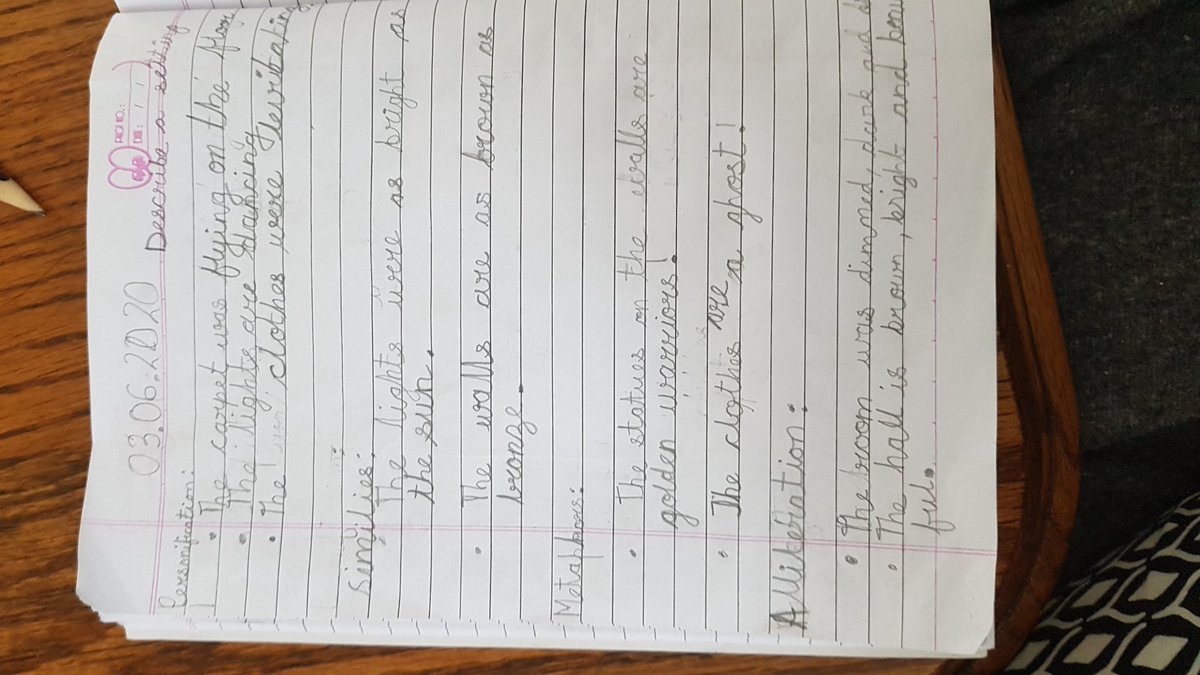 PAGE NO.:
DATE: / /
03.06.2020 Describe a setting
Personification:
• The carpet was flying on the floor
• The lights are dancing
• The clothes were
Similies:
• The lights were as bright as
the sun.
• The walls are as brown as
bronze.
Metaphors:
• The statues on the walls are
golden warriors!
• The clothes are a ghost!
Alliteration:
• The broom was dimmed, dark and
• The hall is brown, bright and beau
ful.